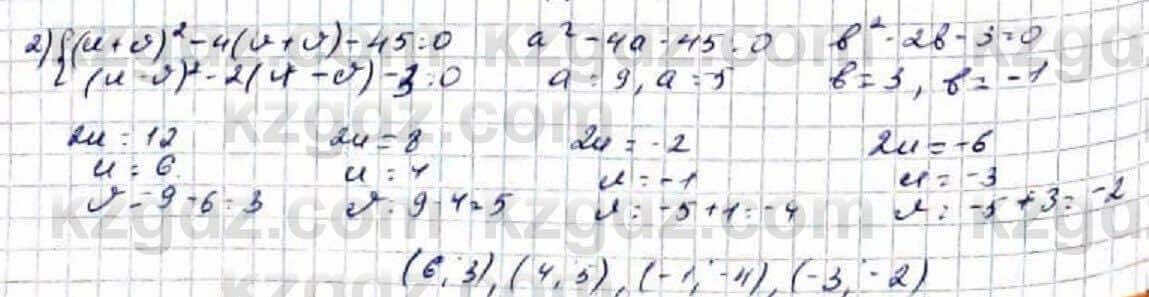 2) {(u+v)² - 4(u+v) - 45 = 0   a² - 4a - 45 = 0   b² - 2b - 3 = 0
(u-v)² - 2(u-v) - 3 = 0   a = 9, a = -5   b = 3, b = -1
2u = 12   2u = 8   2u = -2   2u = -6
u = 6   u = 4   u = -1   u = -3
v = 9 - 6 = 3   v = 9 - 4 = 5   v = -5 + 1 = -4   v = -5 + 3 = -2
(6; 3), (4; 5), (-1; -4), (-3; -2)
kzgdz.com